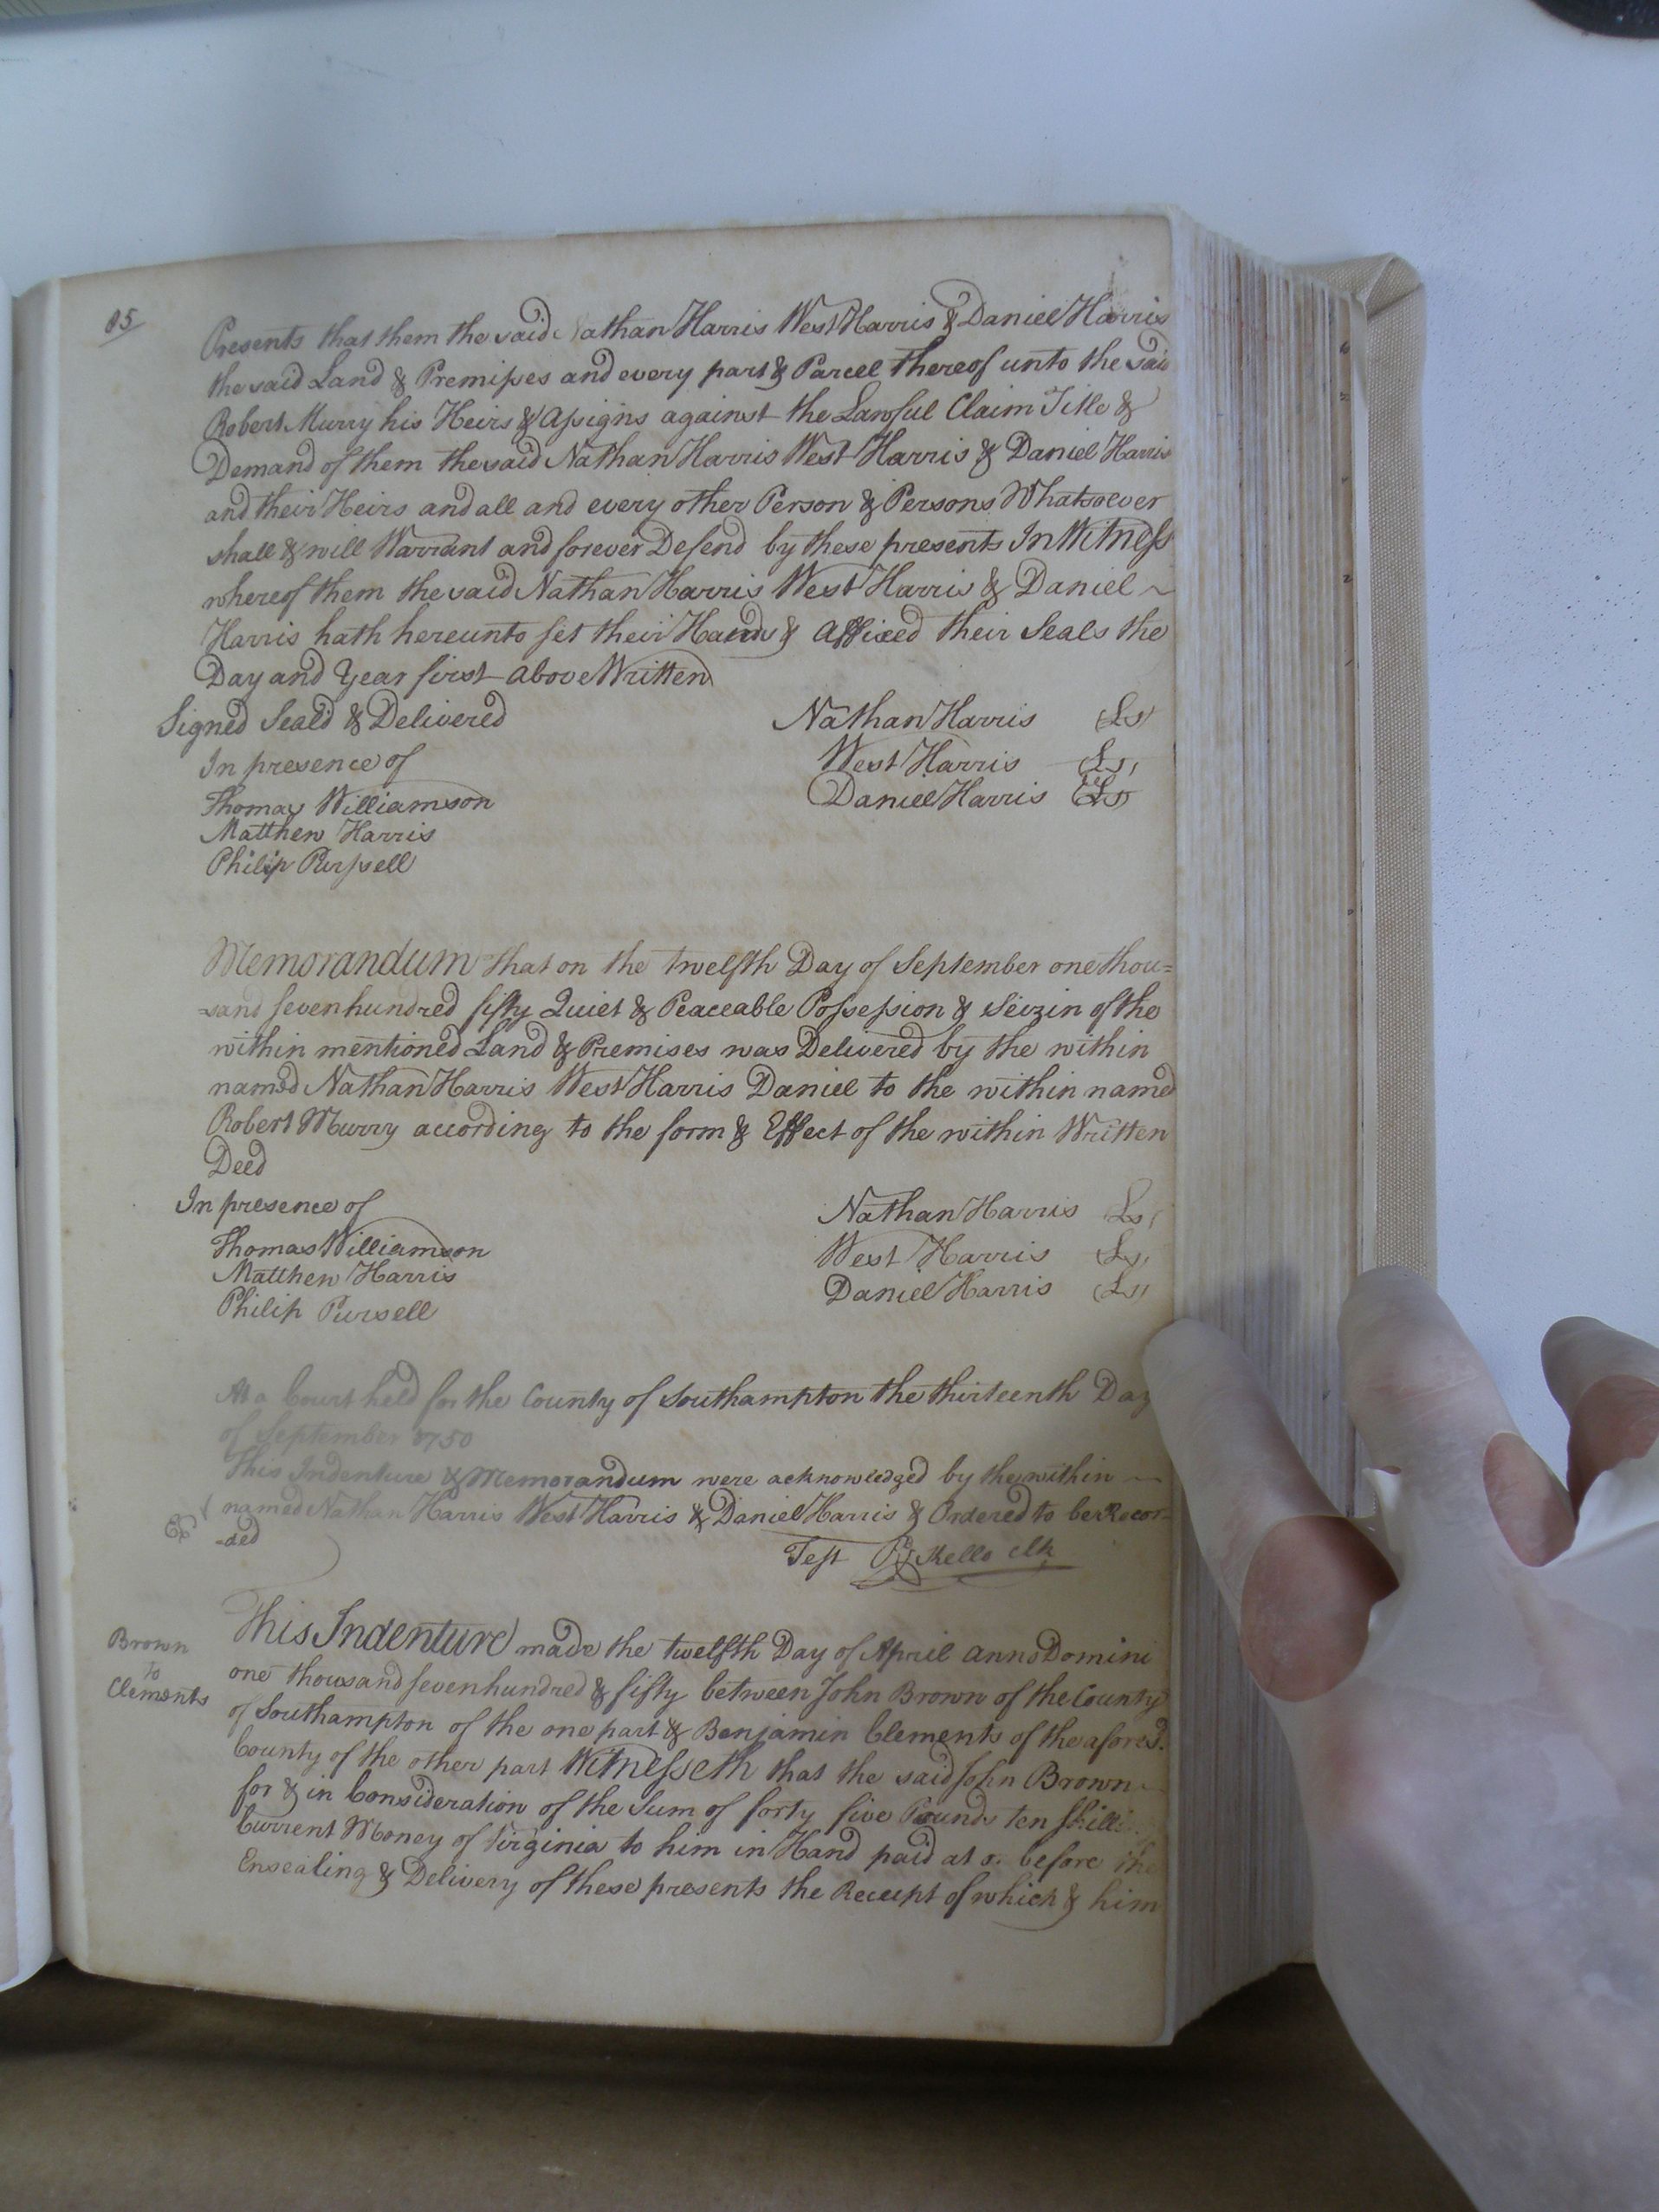 85
Presents that them the said Nathan Harris West Harris & Daniel Harris
the said Land & Premisses and every part & Parcel thereof unto the said
Robert Murry his Heirs & Assigns against the Lawful Claim Title &
Demand of them the said Nathan Harris West Harris & Daniel Harris
and their Heirs and all and every other Person & Persons Whatsoever
shall & will Warrant and forever Defend by these presents In Witness
whereof them the said Nathan Harris West Harris & Daniel ~
Harris hath hereunto set their Hands & affixed their Seals the
Day and Year first above Written
Signed Seal'd & Delivered
Nathan Harris (Ls)
In presence of
West Harris (Ls)
Thomas Williamson
Daniel Harris (Ls)
Matthew Harris
Philip Purssell
Memorandum that on the twelfth Day of September one thou=
-sand seven hundred fifty Quiet & Peaceable Possession & Seizin of the
within mentioned Land & Premises was Delivered by the within
named Nathan Harris West Harris Daniel to the within named
Robert Murry according to the form & Effect of the within Written
Deed
In presence of
Nathan Harris Ls
Thomas Williamson
West Harris (Ls)
Matthew Harris
Daniel Harris (Ls)
Philip Pursell
At a Court held for the County of Southampton the thirteenth Day
of September 1750
This Indenture & Memorandum were acknowledged by the within ~
named Nathan Harris West Harris & Daniel Harris & Ordered to be Recor-
-ded
Test Rd Kello Clk
Brown
to
Clements
This Indenture made the twelfth Day of April anno Domini
one thousand seven hundred & fifty between John Brown of the County
of Southampton of the one part & Benjamin Clements of the aforesd.
County of the other part Witnesseth that the said John Brown ~
for & in Consideration of the Sum of forty five Pounds ten
Current Money of Virginia to him in Hand paid at or before the
Ensealing & Delivery of these presents the Receipt of which & him